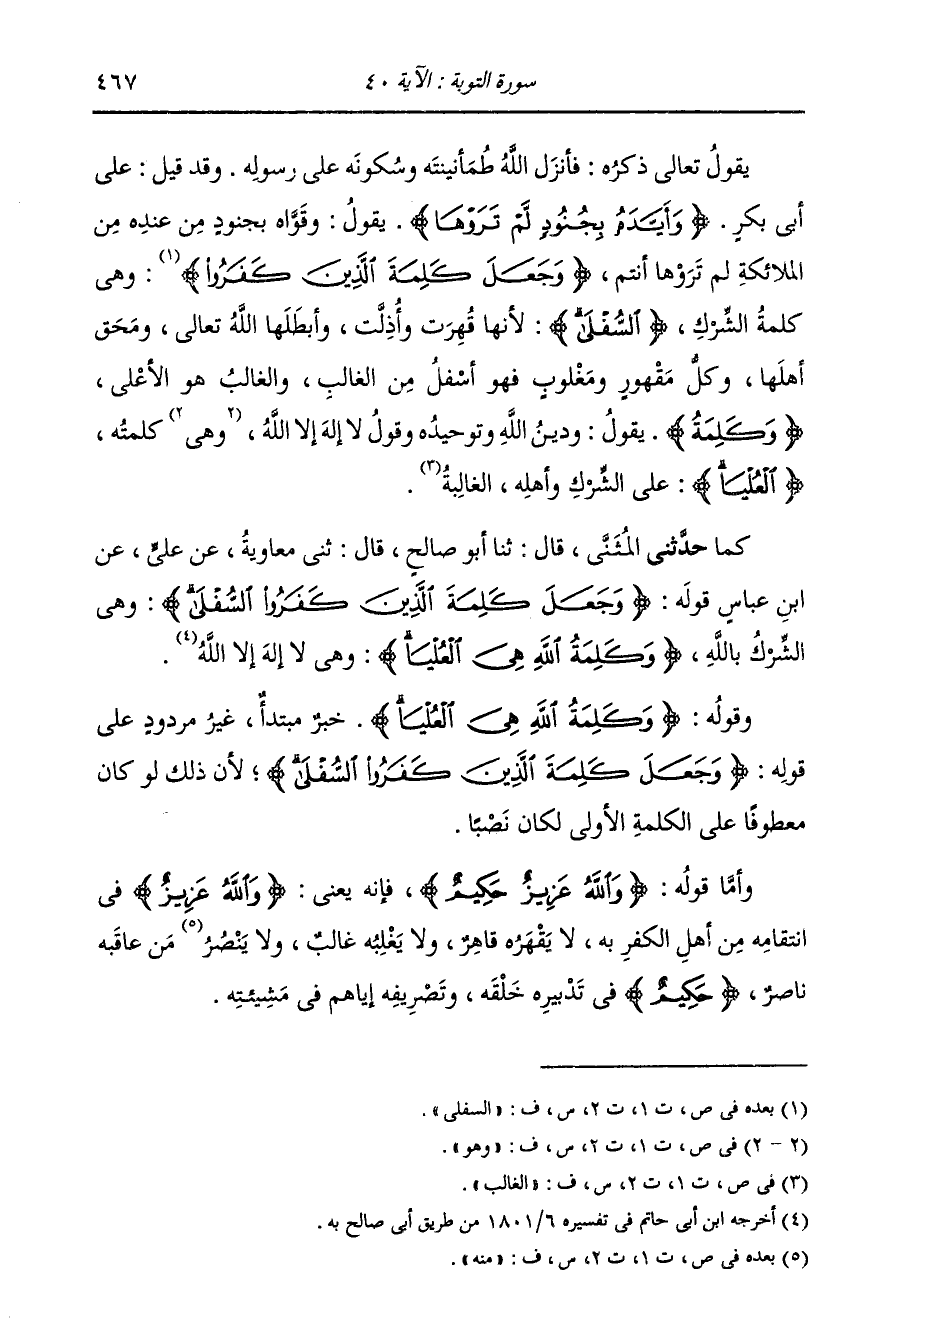 سورة التوبة : الآية ٤٠ ٤٦٧
يقولُ تعالى ذكرُه : فأنزَل اللَّهُ طُمَأنينتَه وسُكونَه على رسولِه . وقد قيل : على
أبى بكرٍ . ﴿ وَأَيَّدَهُ بِجُنُودٍ لَّمْ تَرَوْهَا ﴾ . يقولُ : وقَوَّاه بجنودٍ مِن عندِه مِن
الملائكةِ لم تَرَوْها أنتم ، ﴿ وَجَعَلَ كَلِمَةَ ٱلَّذِينَ كَفَرُوا۟ ﴾(١) : وهى
كلمةُ الشِّرْكِ ، ﴿ ٱلسُّفْلَىٰ ﴾ : لأنها قُهِرَت وأُذِلَّت ، وأبطَلَها اللَّهُ تعالى ، ومَحَق
أهلَها ، وكلُّ مَقْهورٍ ومَغْلوبٍ فهو أسْفلُ مِن الغالبِ ، والغالبُ هو الأعْلى ،
﴿ وَكَلِمَةُ ﴾ . يقولُ : ودينُ اللَّهِ وتوحيدُه وقولُ لا إلهَ إلا اللَّهُ ، (٢وهى٢) كلمتُه ،
﴿ ٱلْعُلْيَا ﴾ : على الشِّرْكِ وأهلِه ، الغالِبةُ(٣) .
كما حدَّثنى المُثَنَّى ، قال : ثنا أبو صالحٍ ، قال : ثنى معاويةُ ، عن علىٍّ ، عن
ابنِ عباسٍ قولَه : ﴿ وَجَعَلَ كَلِمَةَ ٱلَّذِينَ كَفَرُوا۟ ٱلسُّفْلَىٰ ﴾ : وهى
الشِّرْكُ باللَّهِ ، ﴿ وَكَلِمَةُ ٱللَّهِ هِىَ ٱلْعُلْيَا ﴾ : وهى لا إلهَ إلا اللَّهُ(٤) .
وقولُه : ﴿ وَكَلِمَةُ ٱللَّهِ هِىَ ٱلْعُلْيَا ﴾ . خبرٌ مبتدأٌ ، غيرُ مردودٍ على
قولِه : ﴿ وَجَعَلَ كَلِمَةَ ٱلَّذِينَ كَفَرُوا۟ ٱلسُّفْلَىٰ ﴾ ؛ لأن ذلك لو كان
معطوفًا على الكلمةِ الأولى لكان نَصْبًا .
وأمَّا قولُه : ﴿ وَٱللَّهُ عَزِيزٌ حَكِيمٌ ﴾ ، فإنه يعنى : ﴿ وَٱللَّهُ عَزِيزٌ ﴾ فى
انتقامِه مِن أهلِ الكفرِ به ، لا يَقْهَرُه قاهِرٌ ، ولا يَغْلِبُه غالبٌ ، ولا يَنْصُرُ(٥) مَن عاقَبه
ناصرٌ ، ﴿ حَكِيمٌ ﴾ فى تَدْبيرِه خَلْقَه ، وتَصْرِيفِه إياهم فى مَشِيئتِه .
(١) بعده فى ص ، ت ١، ت ٢، س ، ف : «السفلى» .
(٢ - ٢) فى ص ، ت ١، ت ٢، س ، ف : «وهو» .
(٣) فى ص ، ت ١، ت ٢، س ، ف : «الغالب» .
(٤) أخرجه ابن أبى حاتم فى تفسيره ١٨٠١/٦ من طريق أبى صالح به .
(٥) بعده فى ص ، ت ١، ت ٢، س ، ف : «منه» .